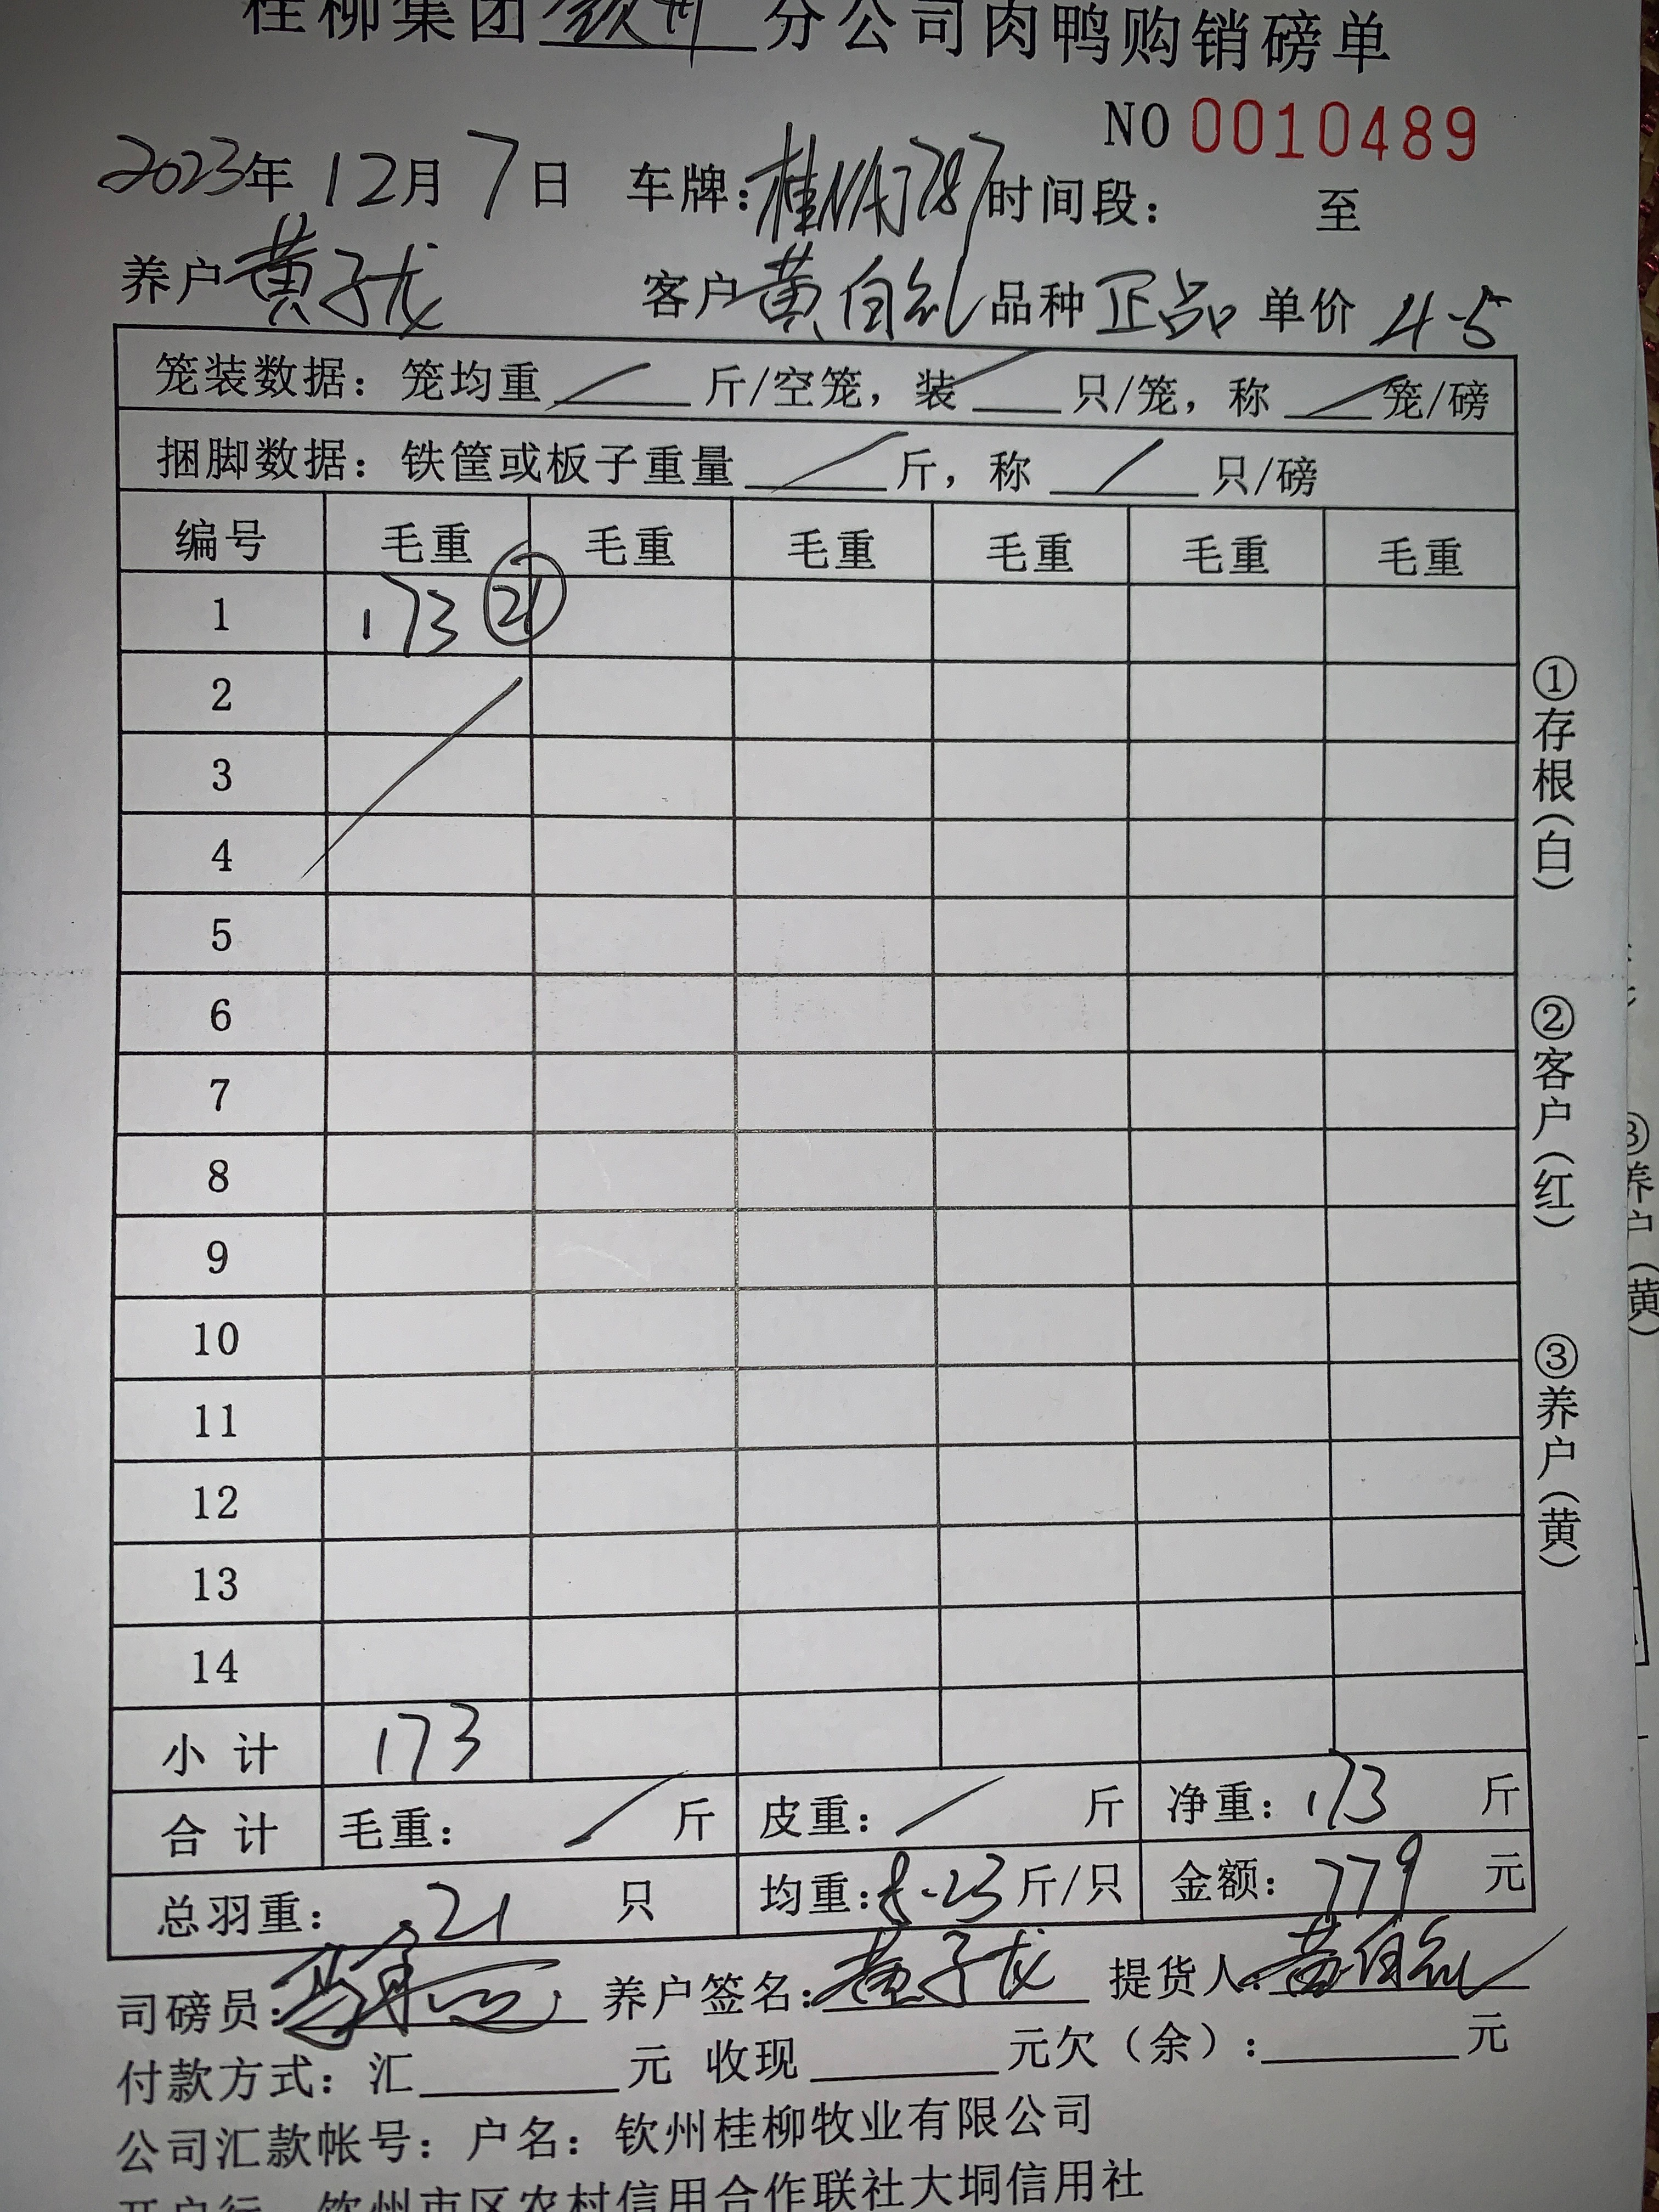 桂柳集团钦州分公司肉鸭购销磅单
NO 0010489
2023年 12月 7日 车牌:桂 787 时间段: 至
养户 黄子龙 客户 黄自礼 品种 正品 单价 4.5
笼装数据: 笼均重 / 斤/空笼, 装 / 只/笼, 称 / 笼/磅
捆脚数据: 铁筐或板子重量 / 斤, 称 / 只/磅
编号 毛重 毛重 毛重 毛重 毛重 毛重
1 173 21
2
3
4
5
6
7
8
9
10
11
12
13
14
小计 173
合计 毛重: / 斤 皮重: / 斤 净重: 173 斤
总羽重: 21 只 均重: 8.23 斤/只 金额: 779 元
司磅员: 养户签名: 黄子龙 提货人: 黄自礼
付款方式: 汇 元 收现 元欠(余): 元
公司汇款帐号: 户名: 钦州桂柳牧业有限公司
开户行 钦州市区农村信用合作联社大垌信用社
①存根(白)
②客户(红)
③养户(黄)
③养户(黄)